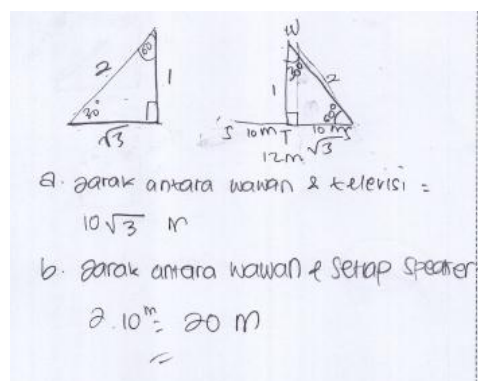 W
60
2
1
30°
√3
30°
1
2
60°
S 10 m T 10 m S
12 m √3
a. Jarak antara wawan & televisi =
10√3 m
b. Jarak antara wawan & setiap speaker
2.10 m = 20 m
=